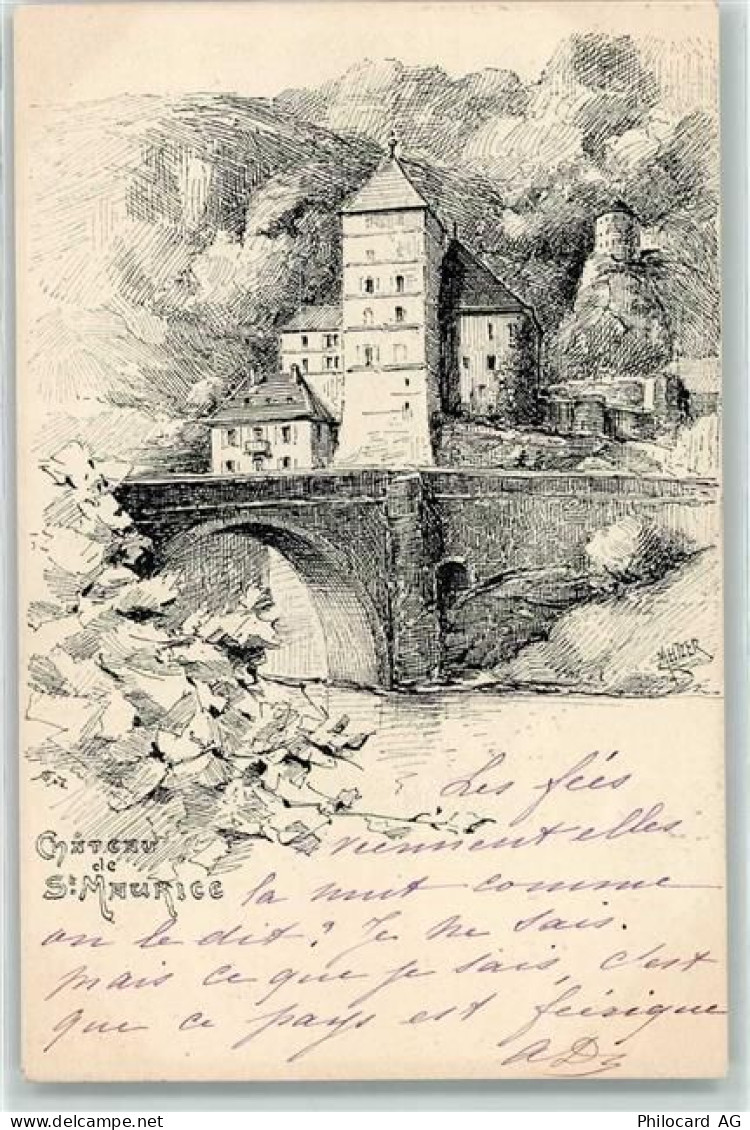 CHÂTEAU
de
St. MAURICE
Les fées
viennent elles
la nuit comme
on le dit? Je ne sais.
mais ce que je sais, c'est
que ce pays est féérique
delcampe.net
Philocard AG